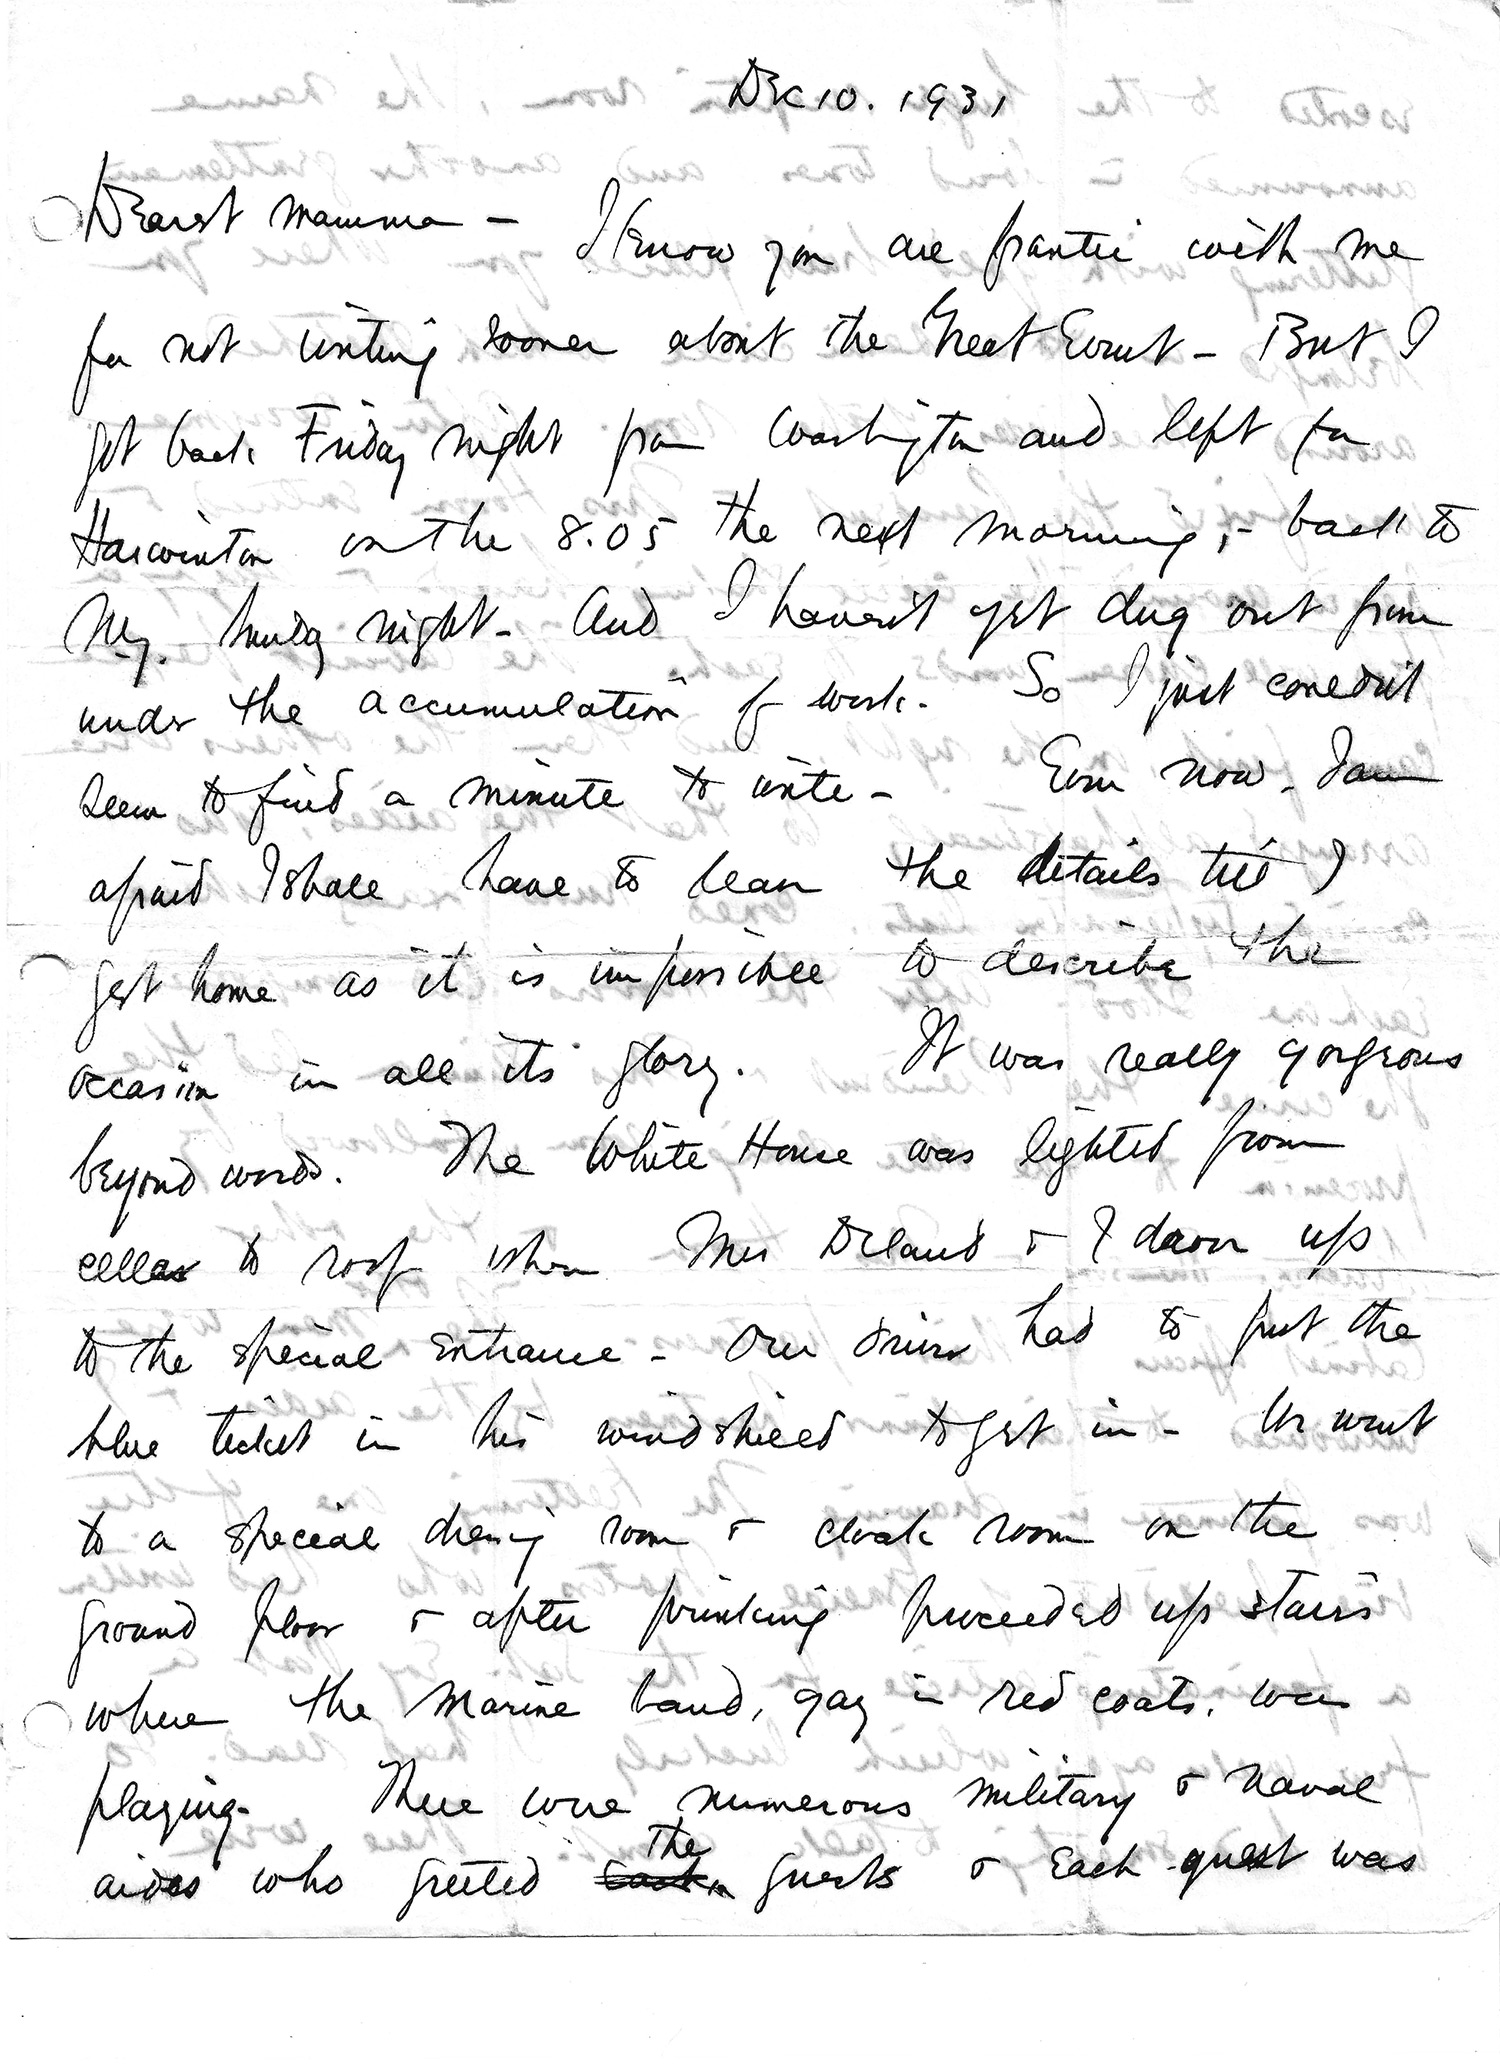 Dec 10. 1931
Dearest Mamma - I know you are frantic with me
for not writing sooner about the Great Event - But I
got back Friday night from Washington and left for
Harwinton on the 8.05 the next morning, - back to
N.Y. Sunday night - And I haven't yet dug out from
under the accumulation of work. So I just couldn't
seem to find a minute to write - Even now, I am
afraid I shall have to leave the details till I
get home as it is impossible to describe the
occasion in all its glory. It was really gorgeous
beyond words. The White House was lighted from
cellar to roof when Mrs Deland & I drove up
to the special entrance - Our driver had to put the
blue ticket in his windshield to get in - We went
to a special dressing room & cloak room on the
ground floor & after prinking proceeded up stairs
where the Marine band, gay in red coats, was
playing. There were numerous military & naval
aides who greeted the guests & each guest was